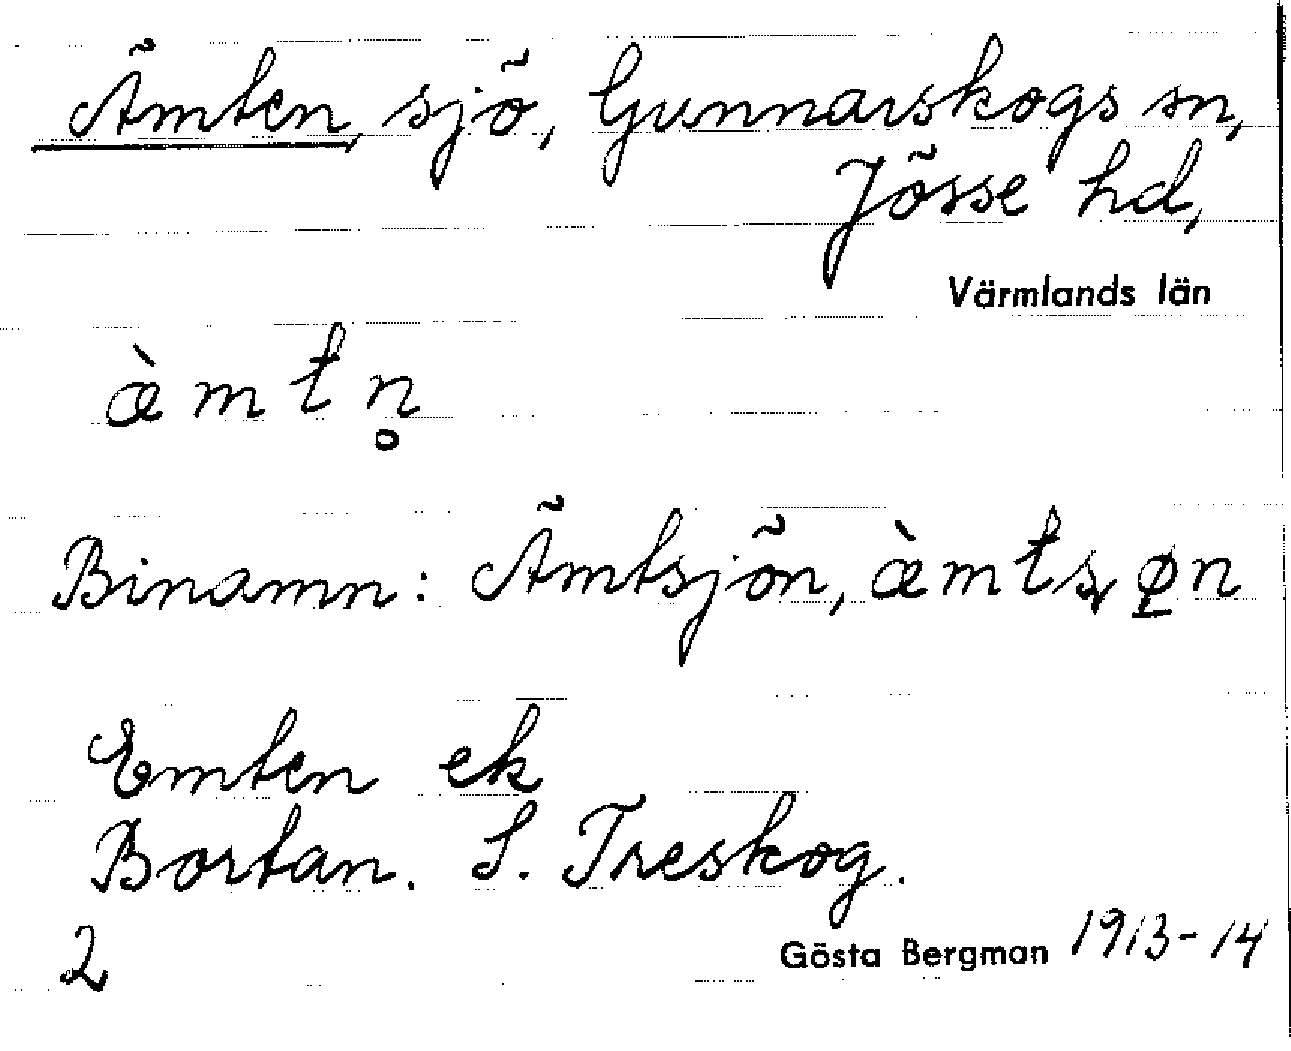 Ämten, sjö, Gunnarskogs sn,
Jösse hd,
Värmlands län
æ̀mtn̥
Binamn: Ämtsjön, æ̀mtʂø̠n
Emten ek
Bortan. S. Treskog.
2
Gösta Bergman 1913-14